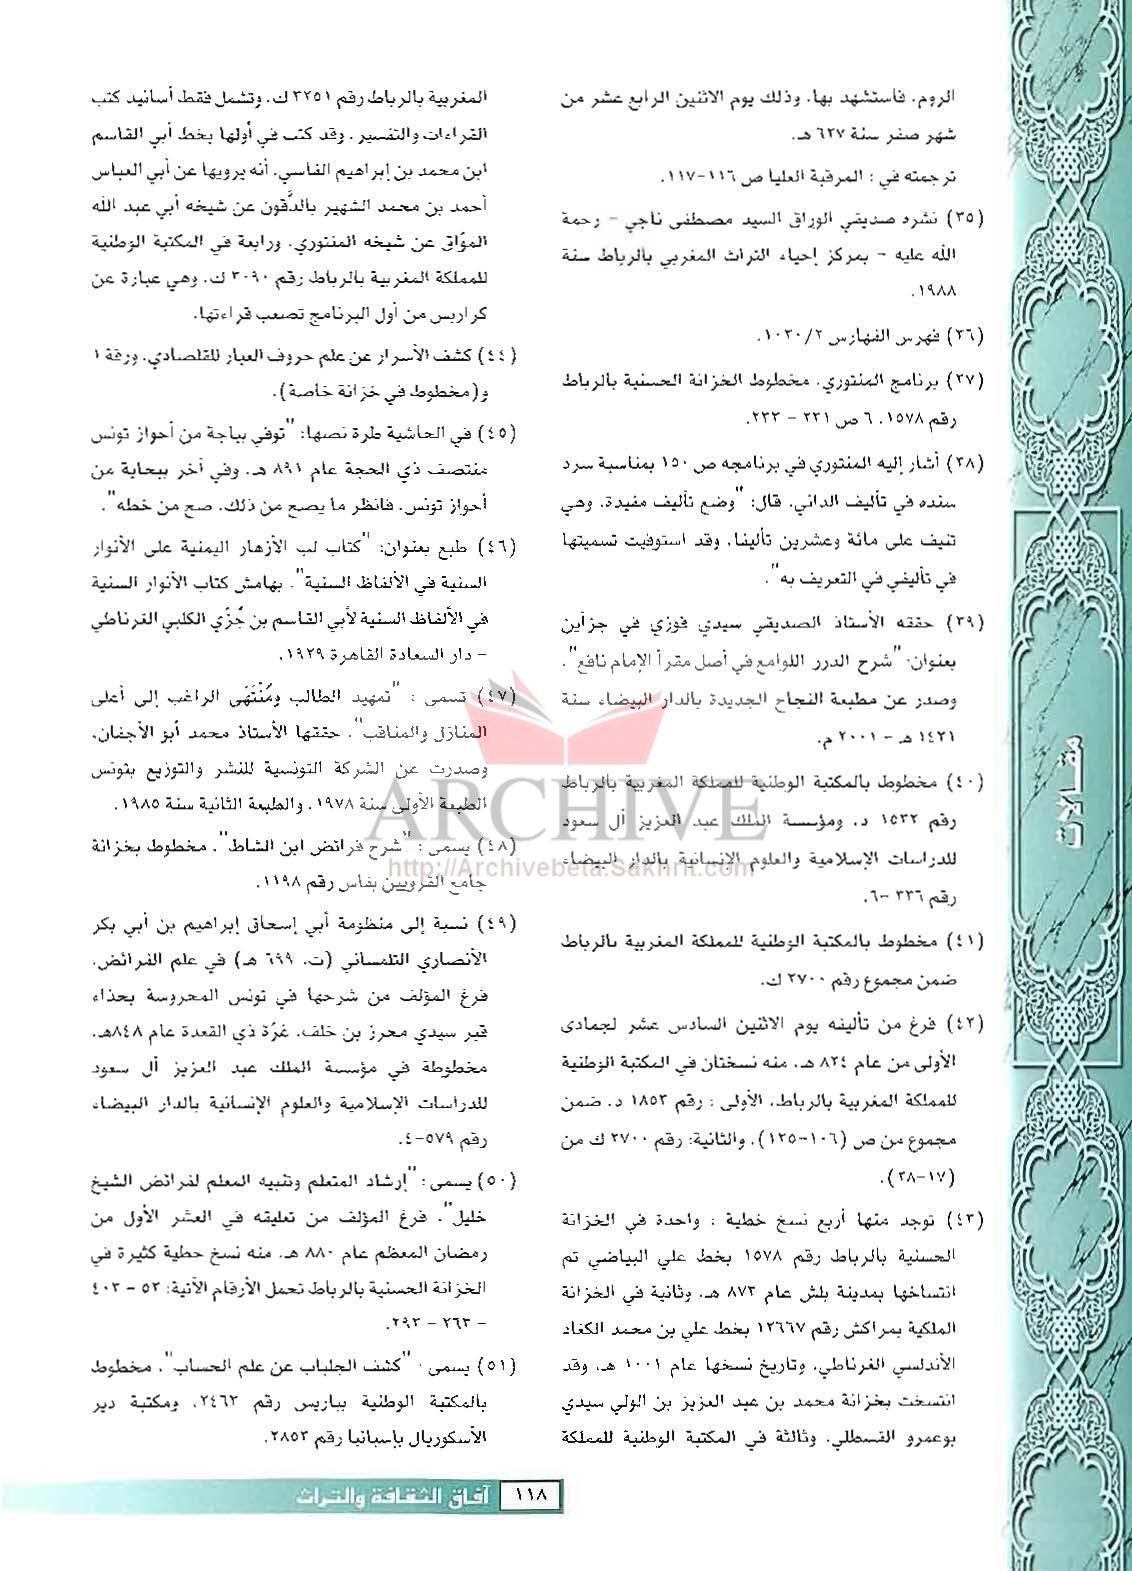 الروم. فاستشهد بها. وذلك يوم الاثنين الرابع عشر من
شهر صفر سنة ٦٢٧ هـ.
ترجمته في : المرقبة العليا ص ١١٦-١١٧.
(٣٥) نشره صديقي الوراق السيد مصطفى ناجي - رحمة
الله عليه - بمركز إحياء التراث المغربي بالرباط سنة
١٩٨٨.
(٣٦) فهرس الفهارس ١٠٣٠/٢.
(٣٧) برنامج المنتوري. مخطوط الخزانة الحسنية بالرباط
رقم ١٥٧٨. ٦ ص ٢٣١ - ٢٣٣.
(٣٨) أشار إليه المنتوري في برنامجه ص ١٥٠ بمناسبة سرد
سنده في تأليف الداني. قال: "وضع تأليف مفيدة. وهي
تنيف على مائة وعشرين تأليفا. وقد استوفيت تسميتها
في تأليفي في التعريف به".
(٣٩) حققه الأستاذ الصديقي سيدي فوزي في جزأين
بعنوان: "شرح الدرر اللوامع في أصل مقرأ الإمام نافع".
وصدر عن مطبعة النجاح الجديدة بالدار البيضاء سنة
١٤٢١ هـ - ٢٠٠١ م.
(٤٠) مخطوط بالمكتبة الوطنية للمملكة المغربية بالرباط
رقم ١٥٣٢ د. ومؤسسة الملك عبد العزيز آل سعود
للدراسات الإسلامية والعلوم الإنسانية بالدار البيضاء
رقم ٣٣٦ -٦.
(٤١) مخطوط بالمكتبة الوطنية للمملكة المغربية بالرباط
ضمن مجموع رقم ٢٧٠٠ ك.
(٤٢) فرغ من تأليفه يوم الاثنين السادس عشر لجمادى
الأولى من عام ٨٢٤ هـ. منه نسختان في المكتبة الوطنية
للمملكة المغربية بالرباط. الأولى : رقم ١٨٥٣ د. ضمن
مجموع من ص (١٠٦-١٢٥). والثانية: رقم ٢٧٠٠ ك من
(١٧-٢٨).
(٤٣) توجد منها أربع نسخ خطية : واحدة في الخزانة
الحسنية بالرباط رقم ١٥٧٨ بخط علي البياضي تم
انتساخها بمدينة بلش عام ٨٧٣ هـ. وثانية في الخزانة
الملكية بمراكش رقم ١٢٦٦٧ بخط علي بن محمد الكغاد
الأندلسي الغرناطي. وتاريخ نسخها عام ١٠٠١ هـ. وقد
انتسخت بخزانة محمد بن عبد العزيز بن الولي سيدي
بوعمرو القسطلي. وثالثة في المكتبة الوطنية للمملكة
المغربية بالرباط رقم ٣٢٥١ ك. وتشمل فقط أسانيد كتب
القراءات والتفسير . وقد كتب في أولها بخط أبي القاسم
ابن محمد بن إبراهيم الفاسي. أنه يرويها عن أبي العباس
أحمد بن محمد الشهير بالدَّقون عن شيخه أبي عبد الله
الموّاق عن شيخه المنتوري. ورابعة في المكتبة الوطنية
للمملكة المغربية بالرباط رقم ٣٠٩٠ ك. وهي عبارة عن
كراريس من أول البرنامج تصعب قراءتها.
(٤٤) كشف الأسرار عن علم حروف الغبار للقلصادي. ورقة ١
و(مخطوط في خزانة خاصة).
(٤٥) في الحاشية طرة نصها: "توفي بباجة من أحواز تونس
منتصف ذي الحجة عام ٨٩١ هـ. وفي آخر ببجاية من
أحواز تونس. فانظر ما يصح من ذلك. صح من خطه".
(٤٦) طبع بعنوان: "كتاب لب الأزهار اليمنية على الأنوار
السنية في الألفاظ السنية". بهامش كتاب الأنوار السنية
في الألفاظ السنية لأبي القاسم بن جُزَي الكلبي الغرناطي
- دار السعادة القاهرة ١٩٢٩.
(٤٧) تسمى : "تمهيد الطالب ومُنْتَهَى الراغب إلى أعلى
المنازل والمناقب". حققها الأستاذ محمد أبو الأجفان.
وصدرت عن الشركة التونسية للنشر والتوزيع بتونس
الطبعة الأولى سنة ١٩٧٨. والطبعة الثانية سنة ١٩٨٥.
(٤٨) يسمى : "شرح فرائض ابن الشاط". مخطوط بخزانة
جامع القرويين بفاس رقم ١١٩٨.
(٤٩) نسبة إلى منظومة أبي إسحاق إبراهيم بن أبي بكر
الأنصاري التلمساني (ت. ٦٩٩ هـ) في علم الفرائض.
فرغ المؤلف من شرحها في تونس المحروسة بحذاء
قبر سيدي محرز بن خلف. غرّة ذي القعدة عام ٨٤٨هـ.
مخطوطة في مؤسسة الملك عبد العزيز آل سعود
للدراسات الإسلامية والعلوم الإنسانية بالدار البيضاء
رقم ٥٧٩-٤.
(٥٠) يسمى : "إرشاد المتعلم وتنبيه المعلم لفرائض الشيخ
خليل". فرغ المؤلف من تعليقه في العشر الأول من
رمضان المعظم عام ٨٨٠ هـ. منه نسخ خطية كثيرة في
الخزانة الحسنية بالرباط تحمل الأرقام الآتية: ٥٣ - ٤٠٣
- ٢٦٣ - ٢٩٣.
(٥١) يسمى : "كشف الجلباب عن علم الحساب". مخطوط
بالمكتبة الوطنية بباريس رقم ٢٤٦٣. ومكتبة دير
الأسكوريال بإسبانيا رقم ٢٨٥٣.
مقالات
ARCHIVE
http://Archivebeta.Sakhrit.com
١١٨ آفاق الثقافة والتراث